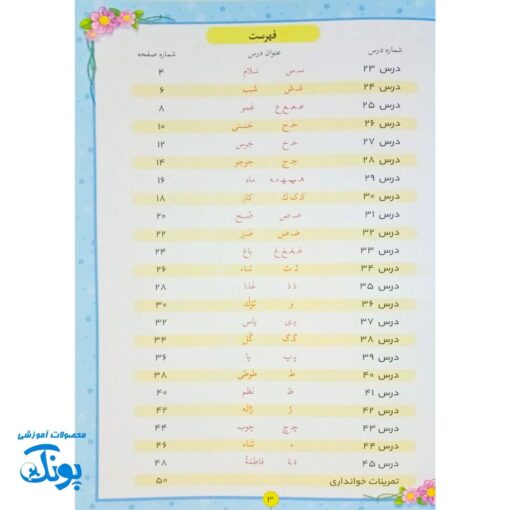 فهرست
شماره درس عنوان درس شماره صفحه
درس ۲۳ سـ س سلام ۴
درس ۲۴ شـ ش شب ۶
درس ۲۵ عـ ـعـ ـع ع عمو ۸
درس ۲۶ حـ ح حسنی ۱۰
درس ۲۷ خـ خ خرس ۱۲
درس ۲۸ جـ ج جوجو ۱۴
درس ۲۹ هـ ـهـ ـه ه ماه ۱۶
درس ۳۰ کـ ک ك کار ۱۸
درس ۳۱ صـ ص صبح ۲۰
درس ۳۲ ضـ ض ضرر ۲۲
درس ۳۳ غـ ـغـ ـغ غ باغ ۲۴
درس ۳۴ ثـ ث ثناء ۲۶
درس ۳۵ ذ ـذ غذا ۲۸
درس ۳۶ و تولد ۳۰
درس ۳۷ یـ ی یاس ۳۲
درس ۳۸ گـ گ گل ۳۴
درس ۳۹ پـ پ پا ۳۶
درس ۴۰ ط طوطی ۳۸
درس ۴۱ ظ نظم ۴۰
درس ۴۲ ژ ژاله ۴۲
درس ۴۳ چـ چ چوب ۴۴
درس ۴۴ ء ثناء ۴۶
درس ۴۵ ة ـة فاطمة ۴۸
تمرینات خوانداری ۵۰
۳
محصولات آموزشی
پونک